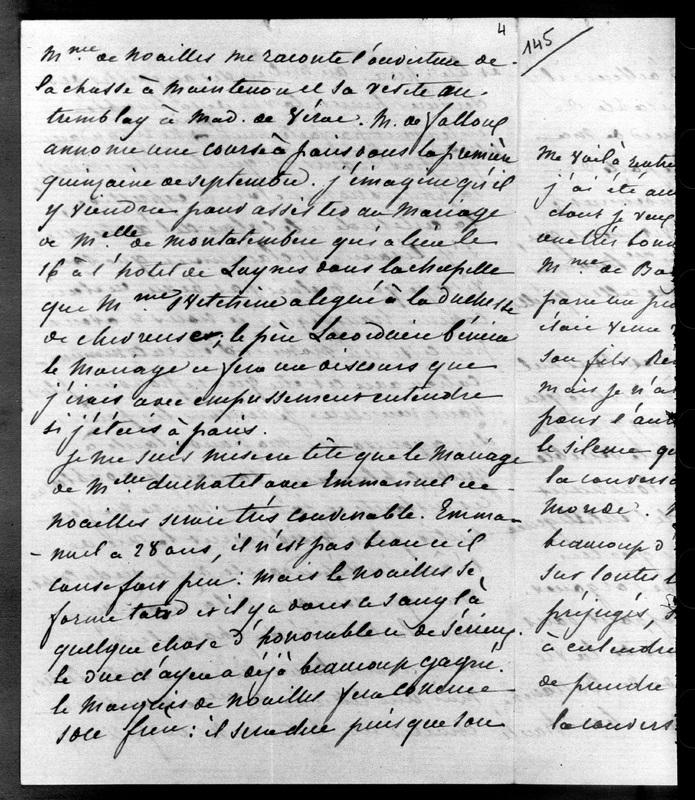 4
145
Mme de Noailles me raconte l'ouverture de
la chasse à Maintenon et sa visite au
tremblay à Mad. de Vérac. M. de falloux
annonce une course à paris dans la première
quinzaine de septembre. j'imagine qu'il
y viendra pour assister au Mariage
de Melle de montalembert qui a lieu le
16 à l'hotel de Luynes dans la chapelle
que Mme Swetchine a legué à la duchesse
de chevreuse, le père Lacordaire bénira
le Mariage et fera un discours que
j'irais avec empressement entendre
si j'étais à paris.
Je me suis mise en tête que le Mariage
de Melle duchatel avec Emmanuel de
Noailles serait très convenable. Emma-
-nuel a 28 ans, il n'est pas beau et il
cause fort peu : mais le Noailles se
forme tard et il y a dans ce sang là
quelque chose d'honorable et de sérieux.
le duc d'ayen a déjà beaucoup gagné.
le Marquis de Noailles fera comme
son frère : il sera duc puisque son
Me voilà rentré
j'ai été au
dont je vous
une très bonne
Mme de
parce un
était venue
son fils
Mais je n'a
pour l'aut
le silence qu
la convers
Monde.
beaucoup d'
sur toutes l
préjugés,
à entendre
de prendre
la convers